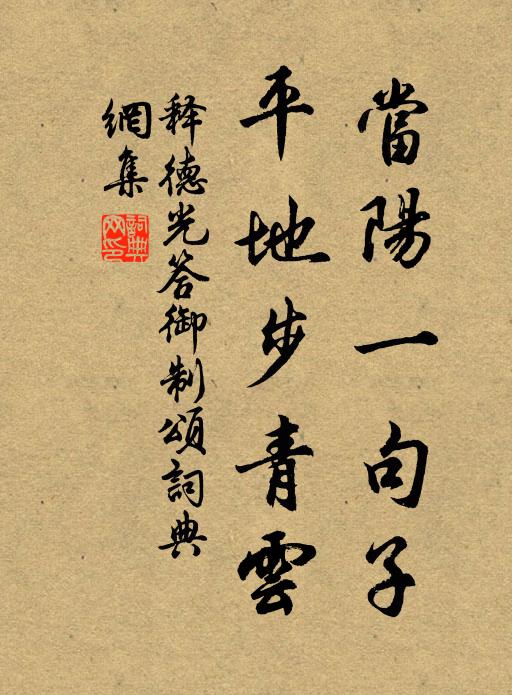 當陽一句子
平地步青雲
釋德光答御制頌詞典
網集
詞典
网印